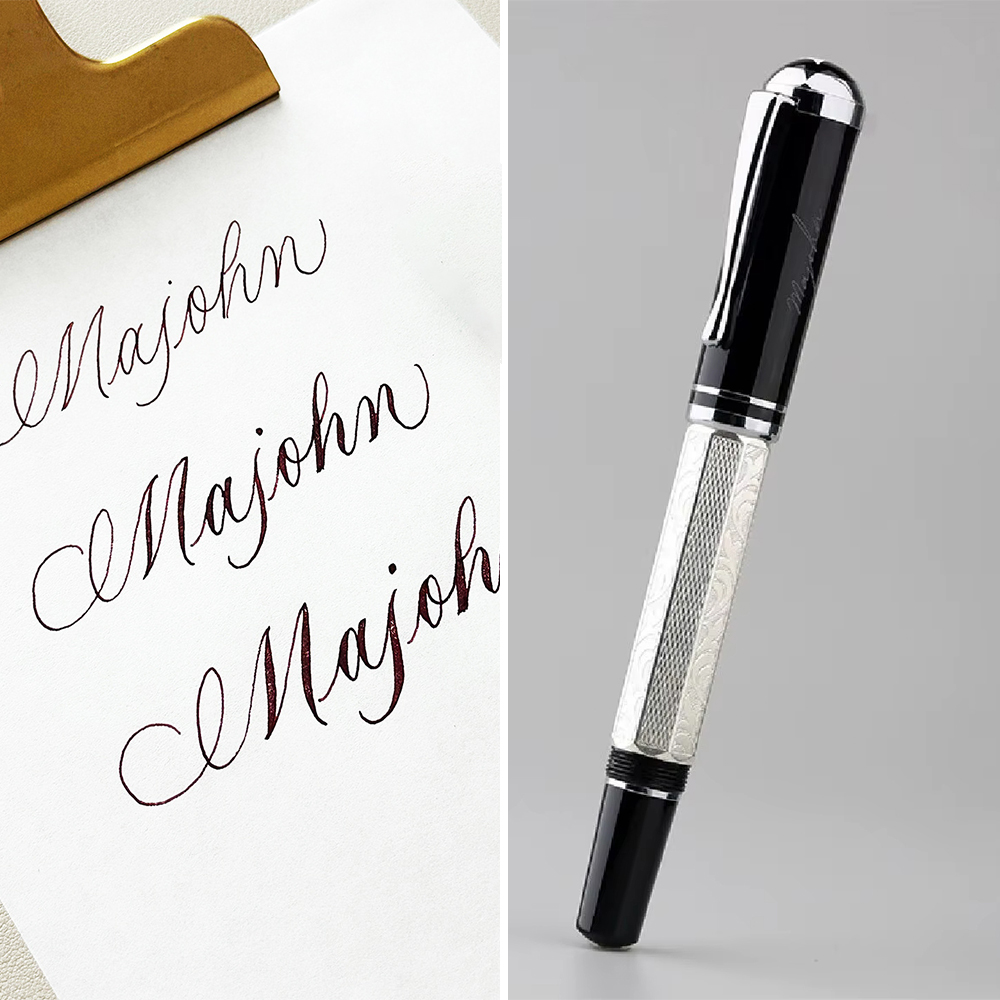 Majohn
Majohn
Majoh
Majohn